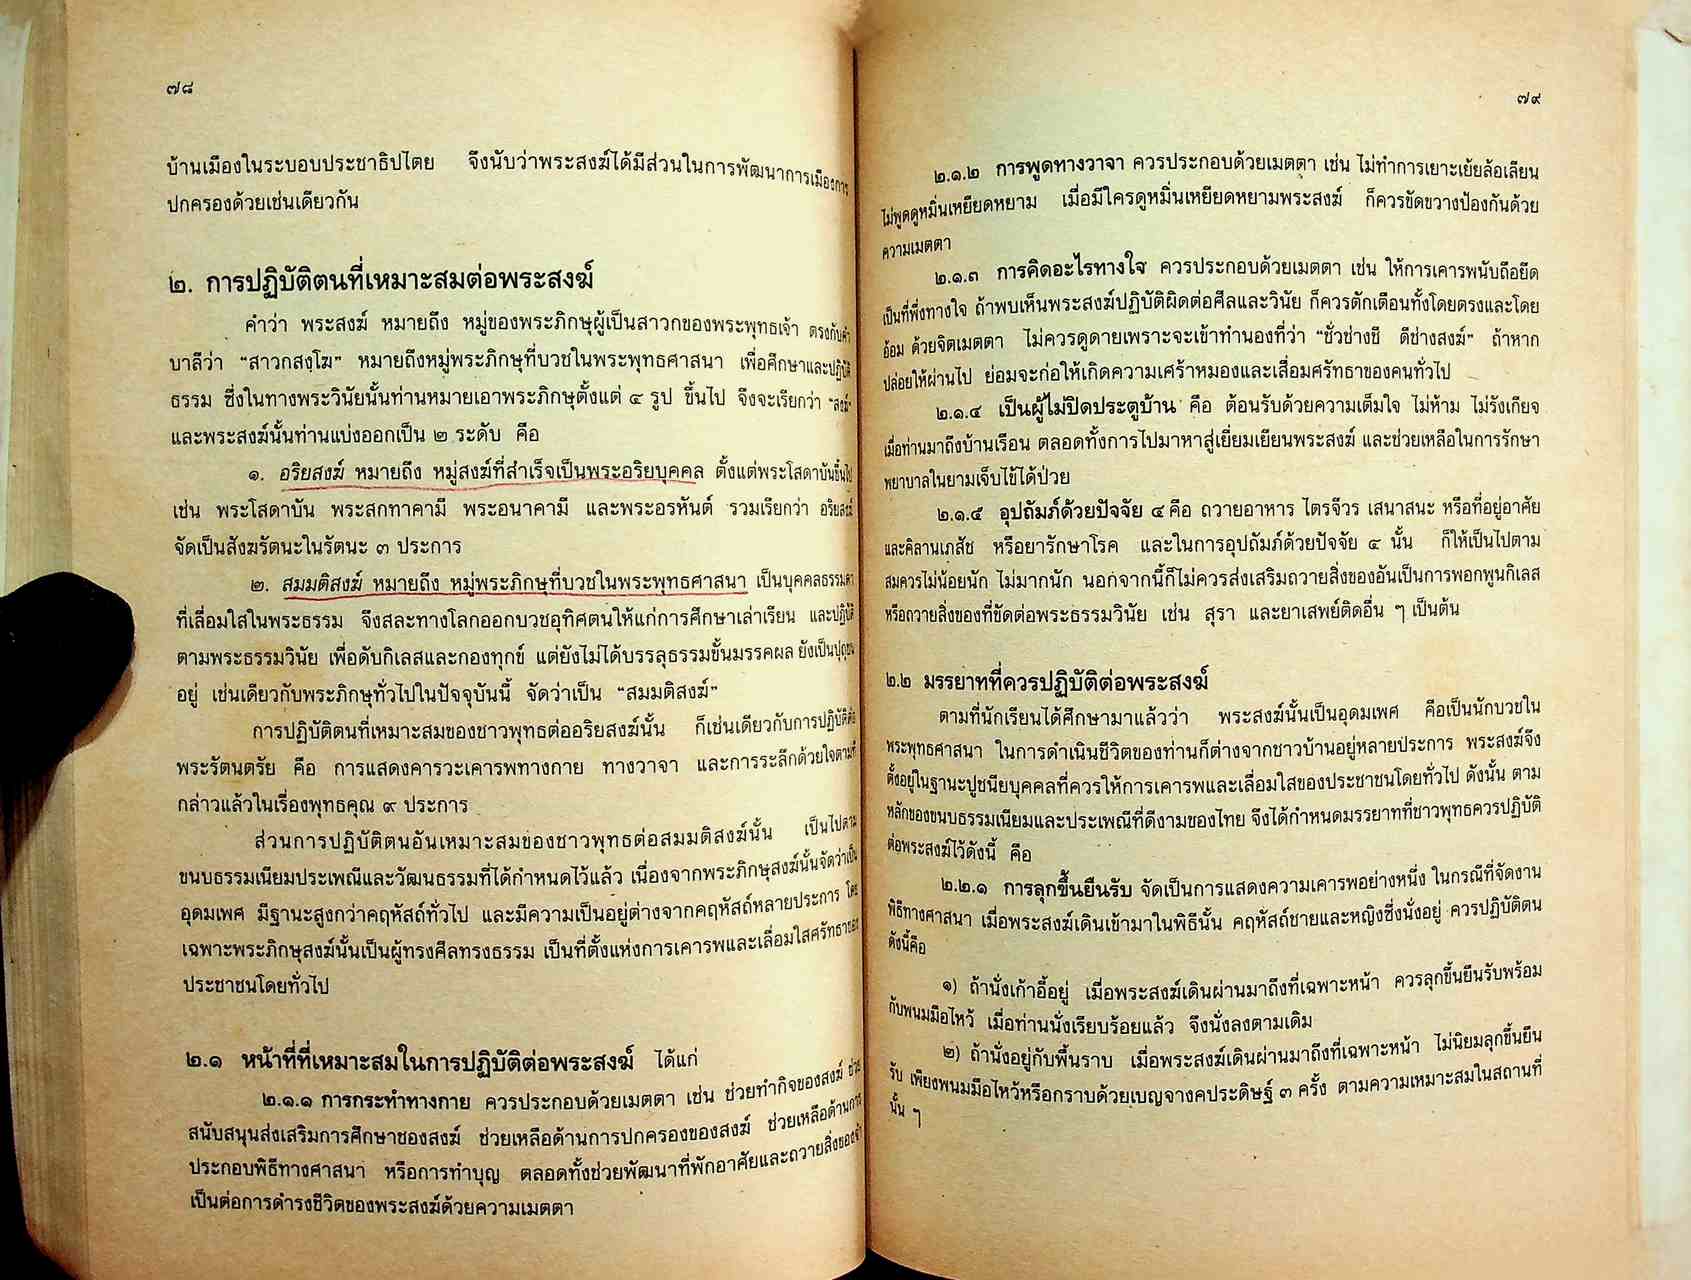 ๗๘
บ้านเมืองในระบอบประชาธิปไตย จึงนับว่าพระสงฆ์ได้มีส่วนในการพัฒนาการเมืองการ
ปกครองด้วยเช่นเดียวกัน
๒. การปฏิบัติตนที่เหมาะสมต่อพระสงฆ์
คำว่า พระสงฆ์ หมายถึง หมู่ของพระภิกษุผู้เป็นสาวกของพระพุทธเจ้า ตรงกับคำ
บาลีว่า “สาวกสงฺโฆ” หมายถึงหมู่พระภิกษุที่บวชในพระพุทธศาสนา เพื่อศึกษาและปฏิบัติ
ธรรม ซึ่งในทางพระวินัยนั้นท่านหมายเอาพระภิกษุตั้งแต่ ๔ รูป ขึ้นไป จึงจะเรียกว่า “สงฆ์”
และพระสงฆ์นั้นท่านแบ่งออกเป็น ๒ ระดับ คือ
๑. อริยสงฆ์ หมายถึง หมู่สงฆ์ที่สำเร็จเป็นพระอริยบุคคล ตั้งแต่พระโสดาบันขึ้นไป
เช่น พระโสดาบัน พระสกทาคามี พระอนาคามี และพระอรหันต์ รวมเรียกว่า อริยสงฆ์
จัดเป็นสังฆรัตนะในรัตนะ ๓ ประการ
๒. สมมติสงฆ์ หมายถึง หมู่พระภิกษุที่บวชในพระพุทธศาสนา เป็นบุคคลธรรมดา
ที่เลื่อมใสในพระธรรม จึงสละทางโลกออกบวชอุทิศตนให้แก่การศึกษาเล่าเรียน และปฏิบัติ
ตามพระธรรมวินัย เพื่อดับกิเลสและกองทุกข์ แต่ยังไม่ได้บรรลุธรรมขั้นมรรคผล ยังเป็นปุถุชน
อยู่ เช่นเดียวกับพระภิกษุทั่วไปในปัจจุบันนี้ จัดว่าเป็น “สมมติสงฆ์”
การปฏิบัติตนที่เหมาะสมของชาวพุทธต่ออริยสงฆ์นั้น ก็เช่นเดียวกับการปฏิบัติต่อ
พระรัตนตรัย คือ การแสดงคารวะเคารพทางกาย ทางวาจา และการระลึกด้วยใจตามที่
กล่าวแล้วในเรื่องพุทธคุณ ๙ ประการ
ส่วนการปฏิบัติตนอันเหมาะสมของชาวพุทธต่อสมมติสงฆ์นั้น เป็นไปตาม
ขนบธรรมเนียมประเพณีและวัฒนธรรมที่ได้กำหนดไว้แล้ว เนื่องจากพระภิกษุสงฆ์นั้นจัดว่าเป็น
อุดมเพศ มีฐานะสูงกว่าคฤหัสถ์ทั่วไป และมีความเป็นอยู่ต่างจากคฤหัสถ์หลายประการ โดย
เฉพาะพระภิกษุสงฆ์นั้นเป็นผู้ทรงศีลทรงธรรม เป็นที่ตั้งแห่งการเคารพและเลื่อมใสศรัทธาของ
ประชาชนโดยทั่วไป
๒.๑ หน้าที่ที่เหมาะสมในการปฏิบัติต่อพระสงฆ์ ได้แก่
๒.๑.๑ การกระทำทางกาย ควรประกอบด้วยเมตตา เช่น ช่วยทำกิจของสงฆ์ ช่วย
สนับสนุนส่งเสริมการศึกษาของสงฆ์ ช่วยเหลือด้านการปกครองของสงฆ์ ช่วยเหลือด้านการ
ประกอบพิธีทางศาสนา หรือการทำบุญ ตลอดทั้งช่วยพัฒนาที่พักอาศัยและถวายสิ่งของจำ
เป็นต่อการดำรงชีวิตของพระสงฆ์ด้วยความเมตตา
๗๙
๒.๑.๒ การพูดทางวาจา ควรประกอบด้วยเมตตา เช่น ไม่ทำการเยาะเย้ยล้อเลียน
ไม่พูดดูหมิ่นเหยียดหยาม เมื่อมีใครดูหมิ่นเหยียดหยามพระสงฆ์ ก็ควรขัดขวางป้องกันด้วย
ความเมตตา
๒.๑.๓ การคิดอะไรทางใจ ควรประกอบด้วยเมตตา เช่น ให้การเคารพนับถือยึด
เป็นที่พึ่งทางใจ ถ้าพบเห็นพระสงฆ์ปฏิบัติผิดต่อศีลและวินัย ก็ควรตักเตือนทั้งโดยตรงและโดย
อ้อม ด้วยจิตเมตตา ไม่ควรดูดายเพราะจะเข้าทำนองที่ว่า “ชั่วช่างชี ดีช่างสงฆ์” ถ้าหาก
ปล่อยให้ผ่านไป ย่อมจะก่อให้เกิดความเศร้าหมองและเสื่อมศรัทธาของคนทั่วไป
๒.๑.๔ เป็นผู้ไม่ปิดประตูบ้าน คือ ต้อนรับด้วยความเต็มใจ ไม่ห้าม ไม่รังเกียจ
เมื่อท่านมาถึงบ้านเรือน ตลอดทั้งการไปมาหาสู่เยี่ยมเยียนพระสงฆ์ และช่วยเหลือในการรักษา
พยาบาลในยามเจ็บไข้ได้ป่วย
๒.๑.๕ อุปถัมภ์ด้วยปัจจัย ๔ คือ ถวายอาหาร ไตรจีวร เสนาสนะ หรือที่อยู่อาศัย
และคิลานเภสัช หรือยารักษาโรค และในการอุปถัมภ์ด้วยปัจจัย ๔ นั้น ก็ให้เป็นไปตาม
สมควรไม่น้อยนัก ไม่มากนัก นอกจากนี้ก็ไม่ควรส่งเสริมถวายสิ่งของอันเป็นการพอกพูนกิเลส
หรือถวายสิ่งของที่ขัดต่อพระธรรมวินัย เช่น สุรา และยาเสพย์ติดอื่น ๆ เป็นต้น
๒.๒ มรรยาทที่ควรปฏิบัติต่อพระสงฆ์
ตามที่นักเรียนได้ศึกษามาแล้วว่า พระสงฆ์นั้นเป็นอุดมเพศ คือเป็นนักบวชใน
พระพุทธศาสนา ในการดำเนินชีวิตของท่านก็ต่างจากชาวบ้านอยู่หลายประการ พระสงฆ์จึง
ตั้งอยู่ในฐานะปูชนียบุคคลที่ควรให้การเคารพและเลื่อมใสของประชาชนโดยทั่วไป ดังนั้น ตาม
หลักของขนบธรรมเนียมและประเพณีที่ดีงามของไทย จึงได้กำหนดมรรยาทที่ชาวพุทธควรปฏิบัติ
ต่อพระสงฆ์ไว้ดังนี้ คือ
๒.๒.๑ การลุกขึ้นยืนรับ จัดเป็นการแสดงความเคารพอย่างหนึ่ง ในกรณีที่จัดงาน
พิธีทางศาสนา เมื่อพระสงฆ์เดินเข้ามาในพิธีนั้น คฤหัสถ์ชายและหญิงซึ่งนั่งอยู่ ควรปฏิบัติตน
ดังนี้คือ
๑) ถ้านั่งเก้าอี้อยู่ เมื่อพระสงฆ์เดินผ่านมาถึงที่เฉพาะหน้า ควรลุกขึ้นยืนรับพร้อม
กับพนมมือไหว้ เมื่อท่านนั่งเรียบร้อยแล้ว จึงนั่งลงตามเดิม
๒) ถ้านั่งอยู่กับพื้นราบ เมื่อพระสงฆ์เดินผ่านมาถึงที่เฉพาะหน้า ไม่นิยมลุกขึ้นยืน
รับ เพียงพนมมือไหว้หรือกราบด้วยเบญจางคประดิษฐ์ ๓ ครั้ง ตามความเหมาะสมในสถานที่
นั้น ๆ